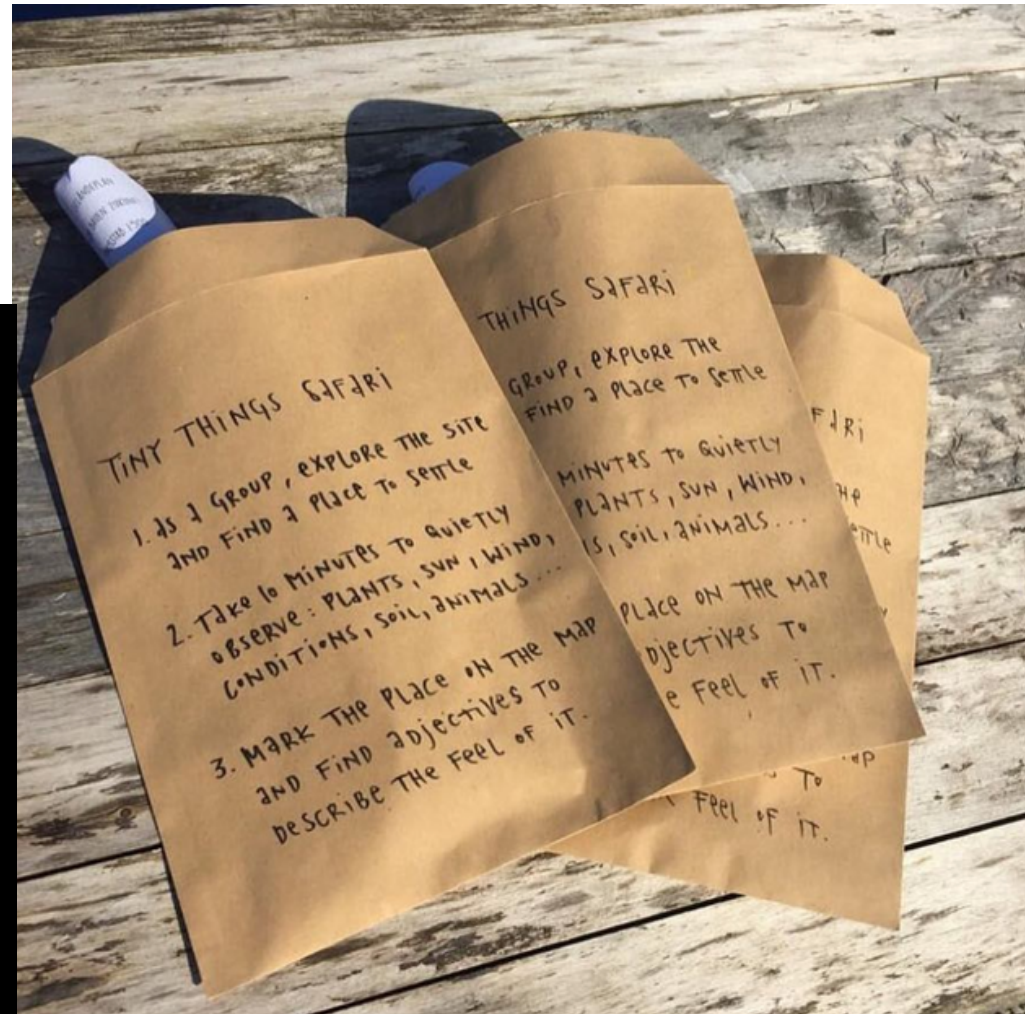 TINY THINGS SAFARI
1. AS A GROUP, EXPLORE THE SITE
AND FIND A PLACE TO SETTLE
2. TAKE 10 MINUTES TO QUIETLY
OBSERVE: PLANTS, SUN, WIND,
CONDITIONS, SOIL, ANIMALS...
3. MARK THE PLACE ON THE MAP
AND FIND ADJECTIVES TO
DESCRIBE THE FEEL OF IT.
THINGS SAFARI
GROUP, EXPLORE THE
FIND A PLACE TO SETTLE
MINUTES TO QUIETLY
PLANTS, SUN, WIND,
S, SOIL, ANIMALS...
PLACE ON THE MAP
DJECTIVES TO
E FEEL OF IT.
FARI
HE
ETTLE
TO
FEEL OF IT.